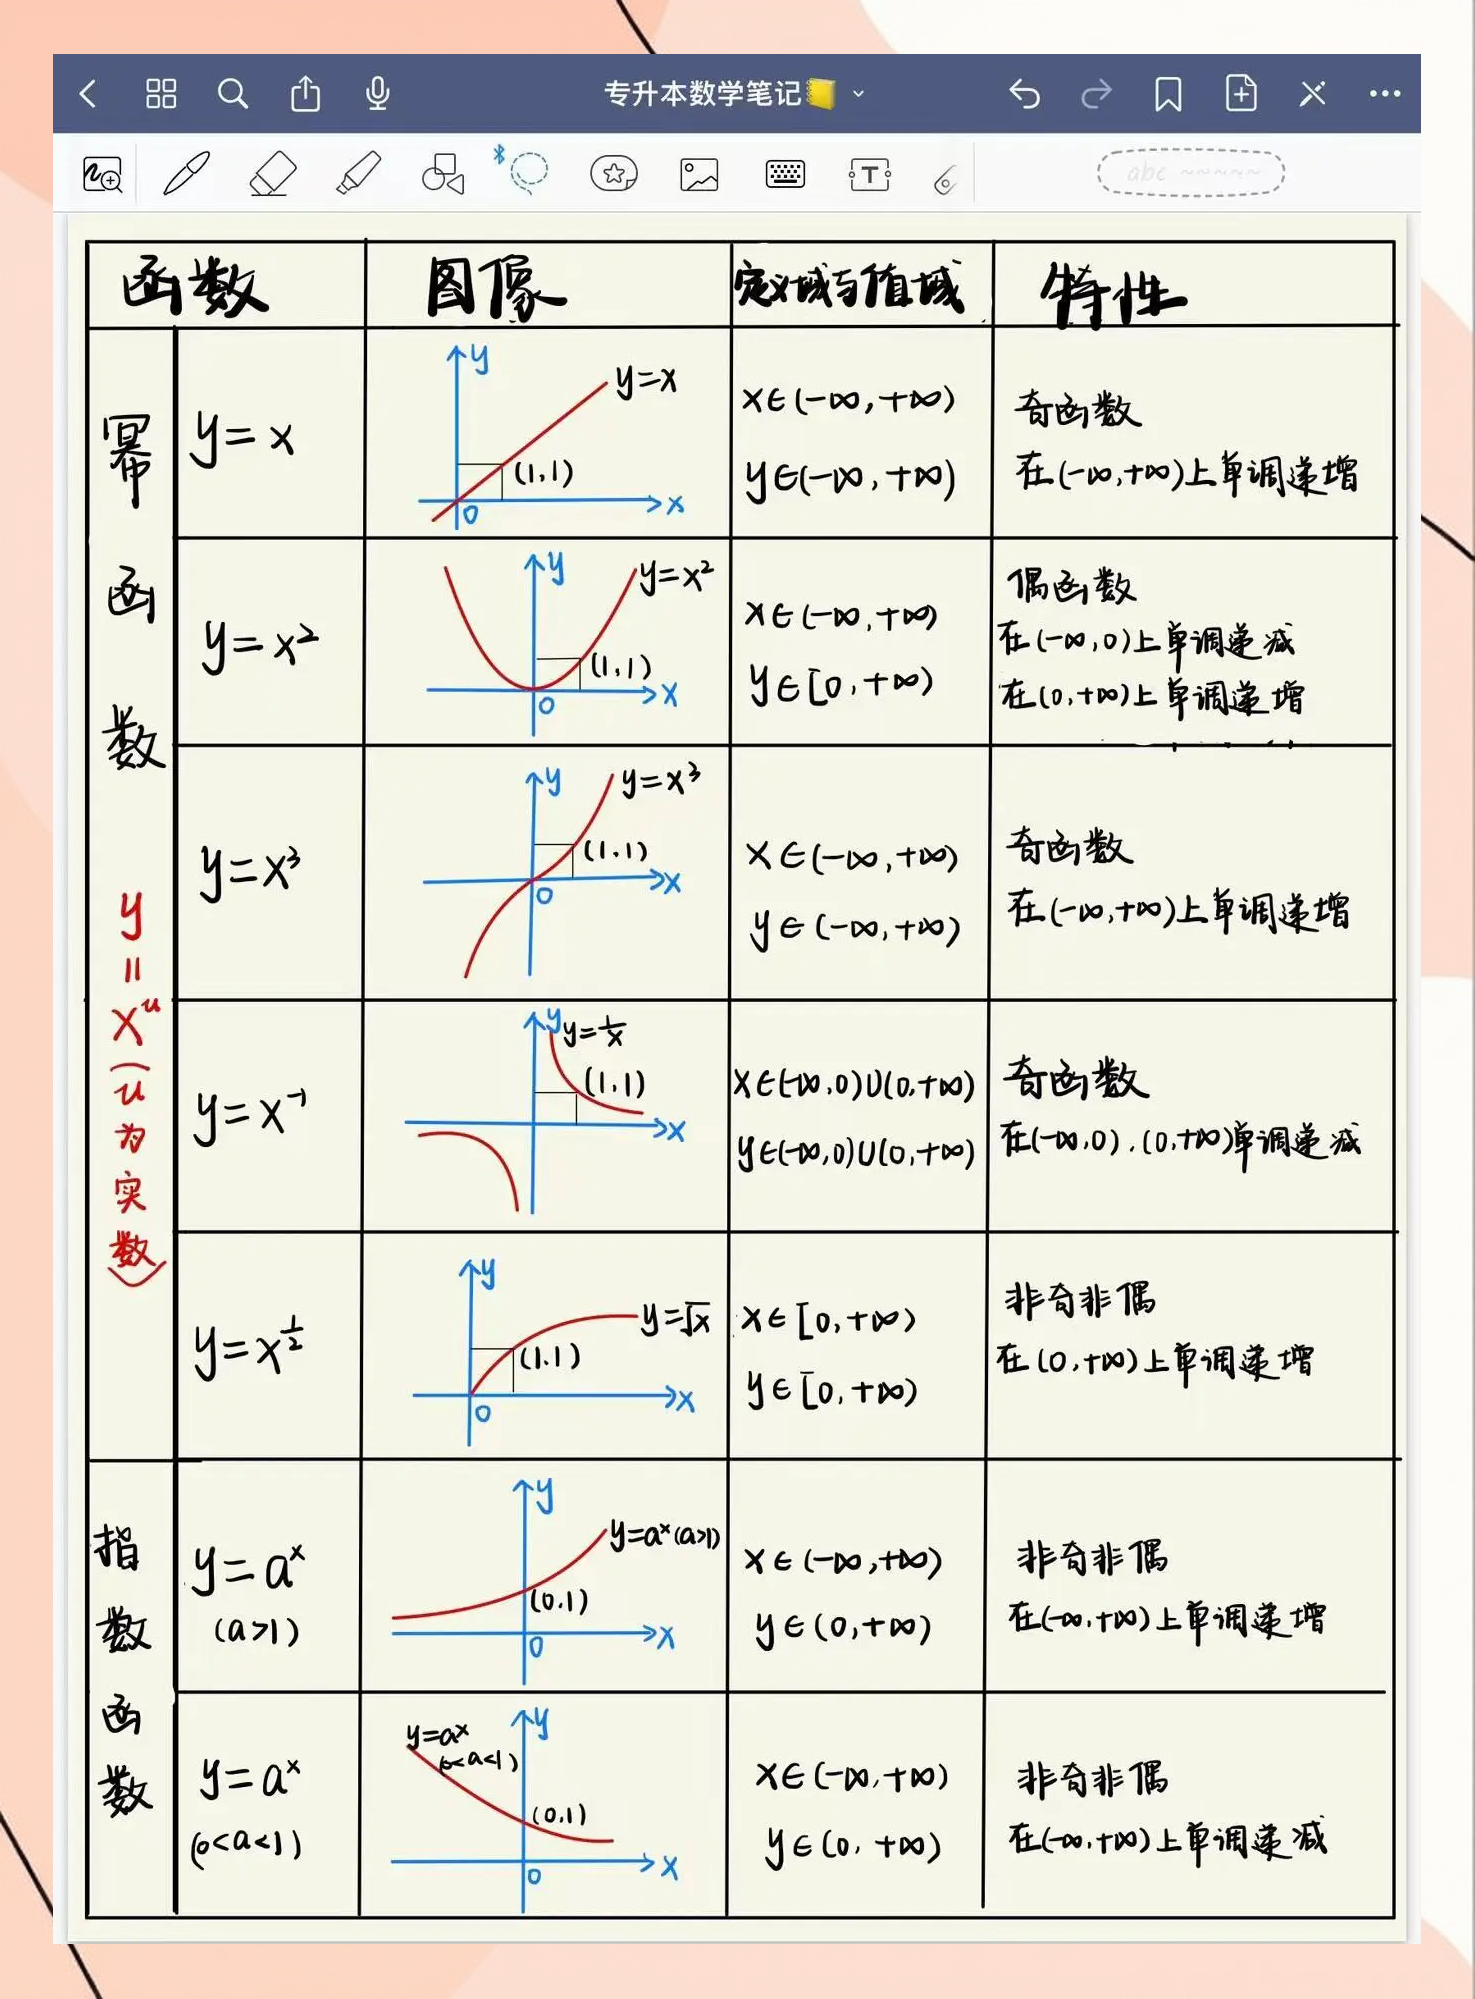 专升本数学笔记
abc
函数 图像 定义域与值域 特性
幂函数 y=xᵘ(u为实数)
y=x
y
y=x
(1,1)
0
x
x∈(-∞,+∞)
y∈(-∞,+∞)
奇函数
在(-∞,+∞)上单调递增
y=x²
y
y=x²
(1,1)
0
x
x∈(-∞,+∞)
y∈[0,+∞)
偶函数
在(-∞,0)上单调递减
在(0,+∞)上单调递增
y=x³
y
y=x³
(1,1)
0
x
x∈(-∞,+∞)
y∈(-∞,+∞)
奇函数
在(-∞,+∞)上单调递增
y=x⁻¹
y
y=1/x
(1,1)
x
x∈(-∞,0)∪(0,+∞)
y∈(-∞,0)∪(0,+∞)
奇函数
在(-∞,0).(0,+∞)单调递减
y=x^½
y
y=√x
(1.1)
0
x
x∈[0,+∞)
y∈[0,+∞)
非奇非偶
在(0,+∞)上单调递增
指数函数
y=aˣ
(a>1)
y
y=aˣ(a>1)
(0.1)
0
x
x∈(-∞,+∞)
y∈(0,+∞)
非奇非偶
在(-∞,+∞)上单调递增
y=aˣ
(0<a<1)
y
y=aˣ
(0<a<1)
(0.1)
0
x
x∈(-∞,+∞)
y∈(0,+∞)
非奇非偶
在(-∞,+∞)上单调递减